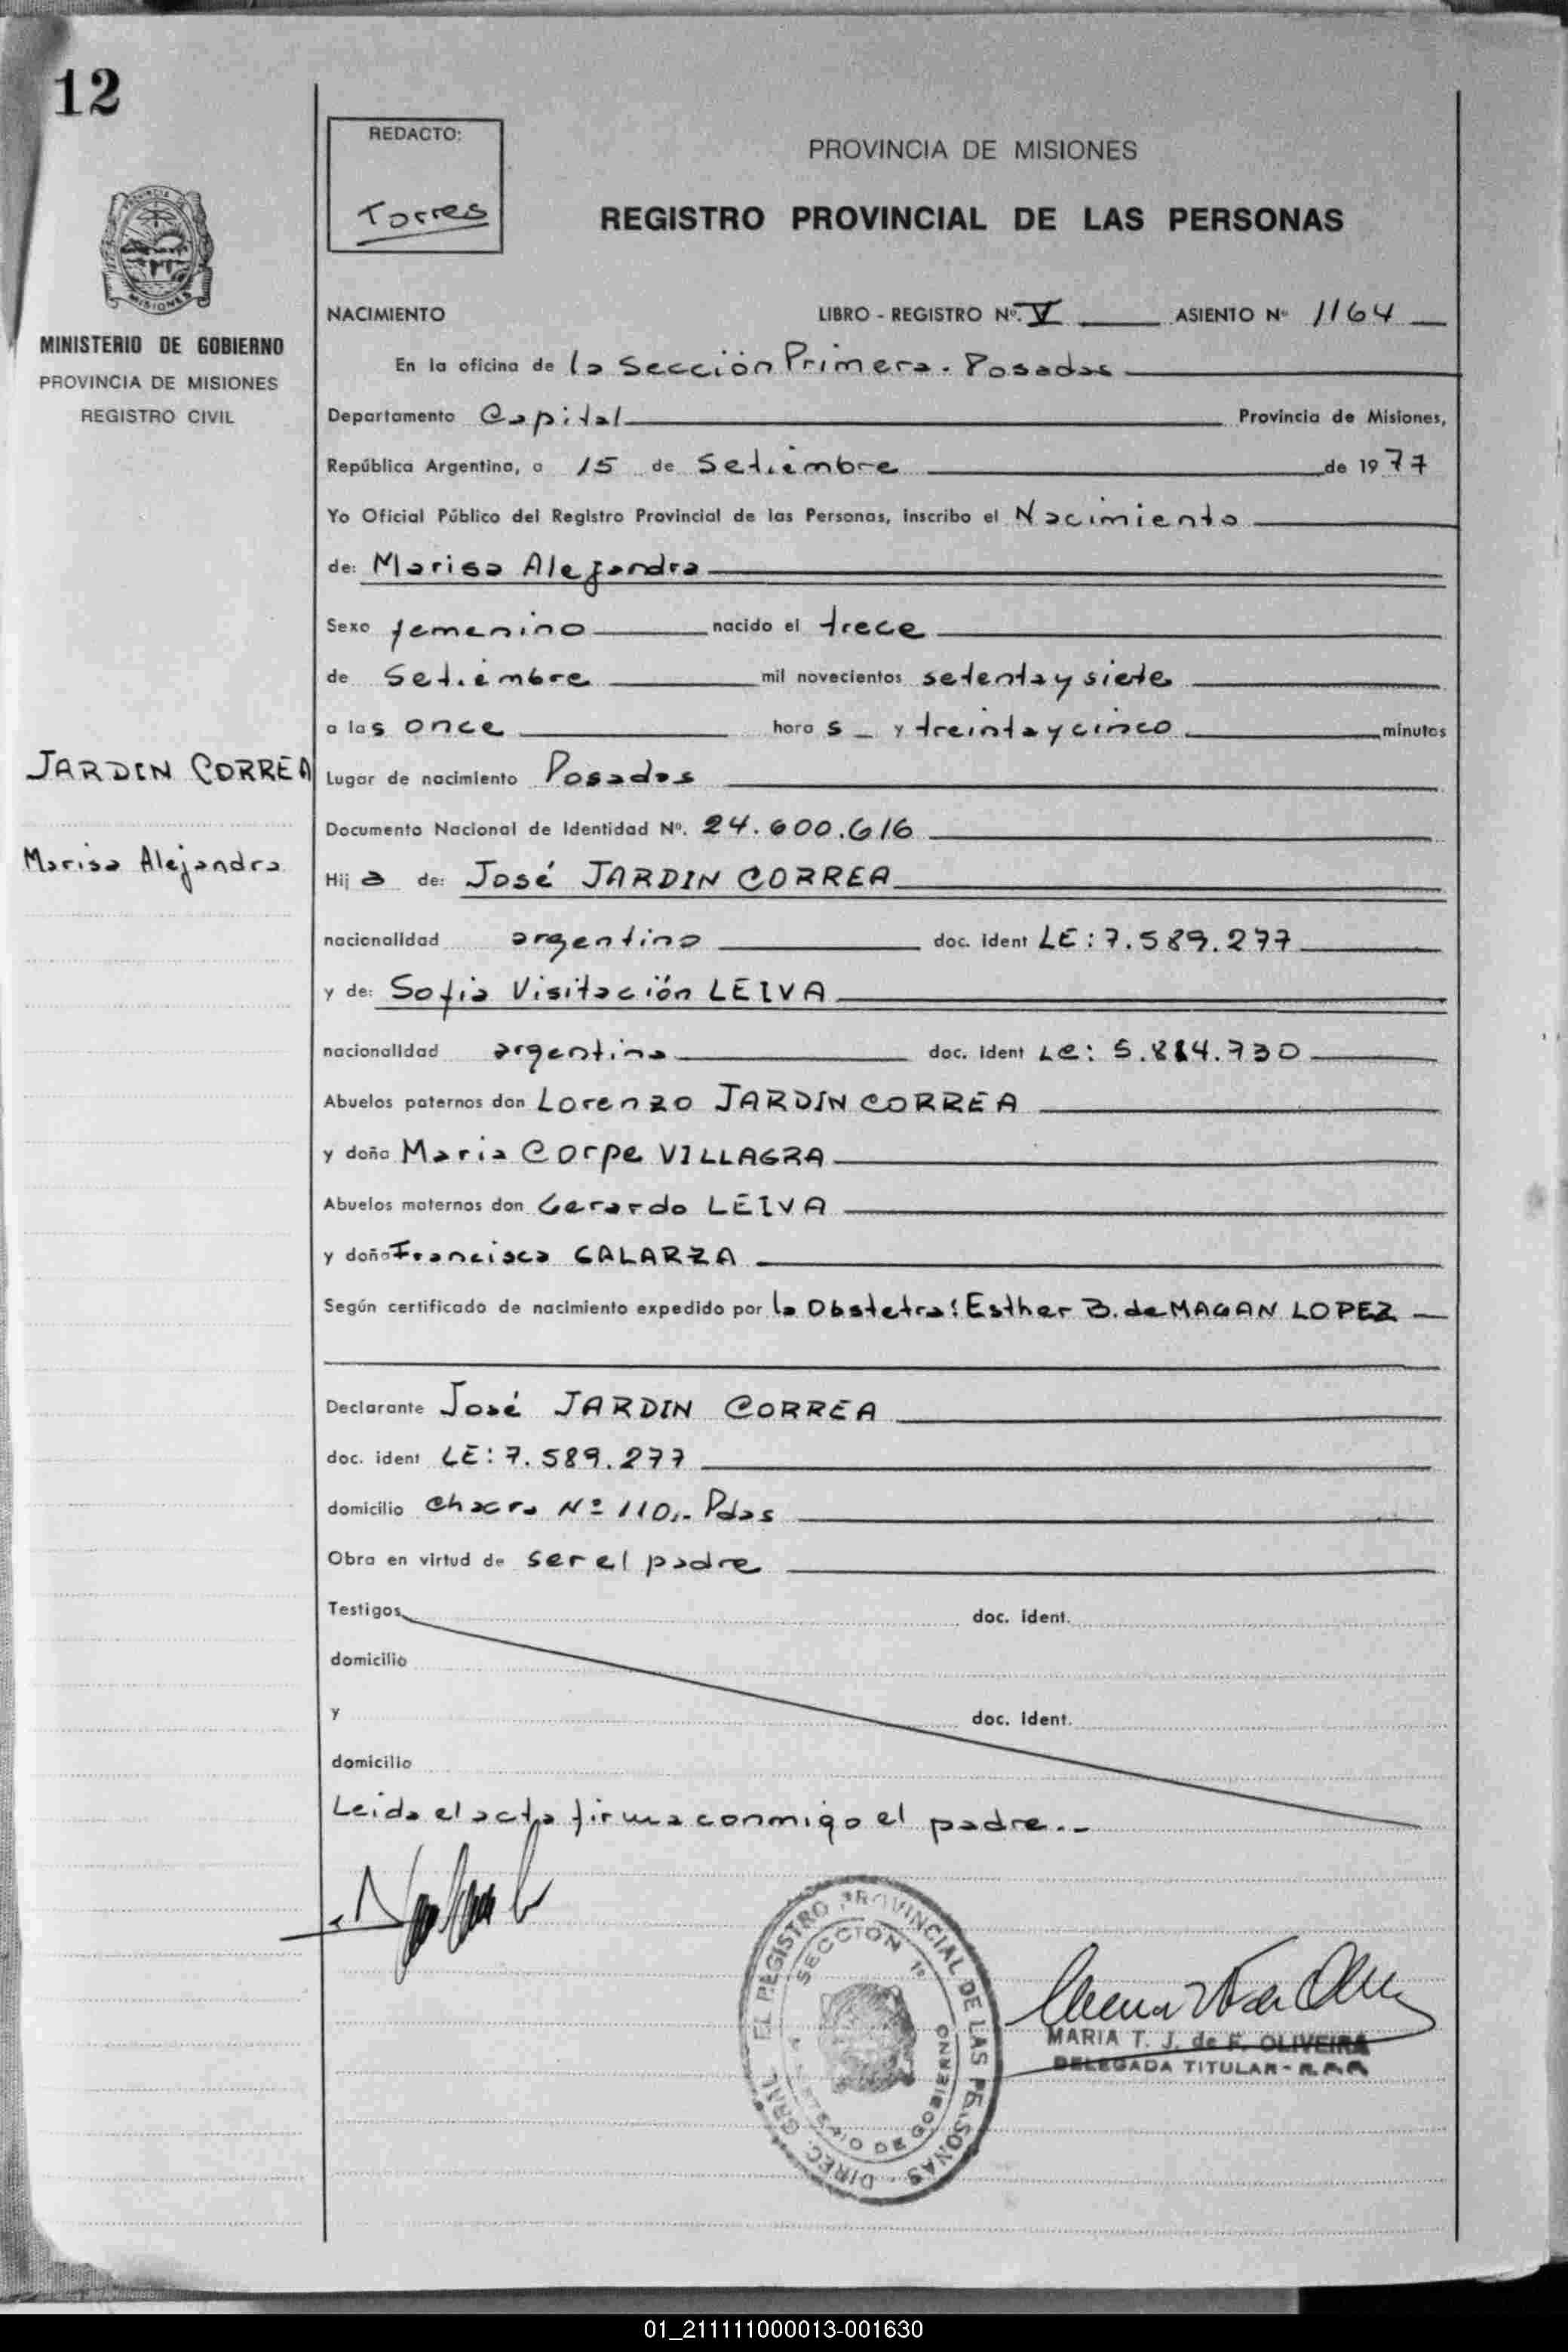 12
REDACTO:
Torres
PROVINCIA DE MISIONES
REGISTRO PROVINCIAL DE LAS PERSONAS
MISIONES
MINISTERIO DE GOBIERNO
PROVINCIA DE MISIONES
REGISTRO CIVIL
NACIMIENTO LIBRO - REGISTRO Nº. V ASIENTO Nº 1164
En la oficina de la Sección Primera. Posadas
Departamento Capital Provincia de Misiones,
República Argentina, a 15 de Setiembre de 1977
Yo Oficial Público del Registro Provincial de las Personas, inscribo el Nacimiento
de: Marisa Alejandra
Sexo femenino nacido el trece
de Setiembre mil novecientos setenta y siete
a las once hora s y treinta y cinco minutos
JARDIN CORREA
Marisa Alejandra
Lugar de nacimiento Posadas
Documento Nacional de Identidad Nº. 24.600.616
Hij a de: José JARDIN CORREA
nacionalidad argentina doc. ident LE: 7.589.277
y de: Sofia Visitación LEIVA
nacionalidad argentina doc. ident Le: 5.884.730
Abuelos paternos don Lorenzo JARDIN CORREA
y doña Maria Corpe VILLAGRA
Abuelos maternos don Gerardo LEIVA
y doña Francisca GALARZA
Según certificado de nacimiento expedido por la Obstetra: Esther B. de MAGAN LOPEZ
Declarante José JARDIN CORREA
doc. ident LE: 7.589.277
domicilio Chacra Nº 110.- Pdas
Obra en virtud de ser el padre
Testigos doc. ident.
domicilio
y doc. ident.
domicilio
Leida el acta firma conmigo el padre.-
DIREC. GRAL. EL REGISTRO PROVINCIAL DE LAS PERSONAS
SECCION 1ª
DE GOBIERNO
MARIA T. J. de F. OLIVEIRA
DELEGADA TITULAR -
01_211111000013-001630